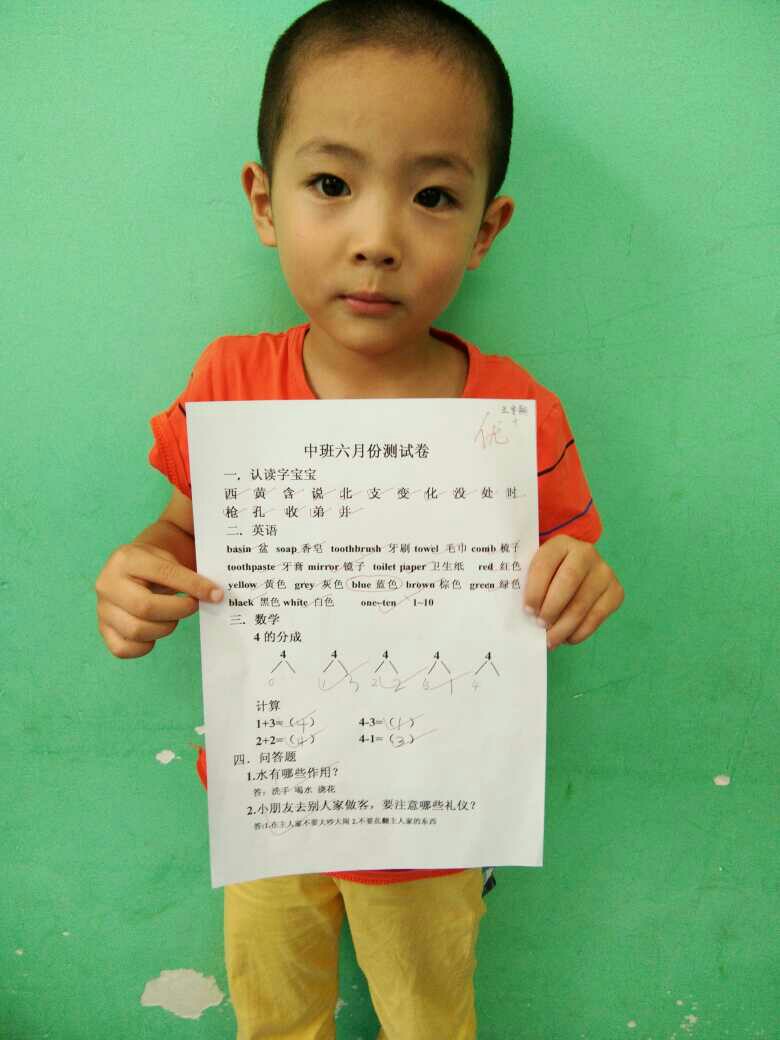 优
中班六月份测试卷
一．认读字宝宝
西 黄 含 说 北 支 变 化 没 处 时
枪 孔 收 弟 并
二．英语
basin 盆 soap 香皂 toothbrush 牙刷 towel 毛巾 comb 梳子
toothpaste 牙膏 mirror 镜子 toilet paper 卫生纸 red 红色
yellow 黄色 grey 灰色 blue 蓝色 brown 棕色 green 绿色
black 黑色 white 白色 one~ten 1~10
三．数学
4 的分成
4 4 4 4 4
0 1 3 2 2 3 1 4
计算
1+3=（4） 4-3=（1）
2+2=（4） 4-1=（3）
四．问答题
1.水有哪些作用？
答：洗手 喝水 浇花
2.小朋友去别人家做客，要注意哪些礼仪？
答:1.在主人家不要大吵大闹 2.不要乱翻主人家的东西